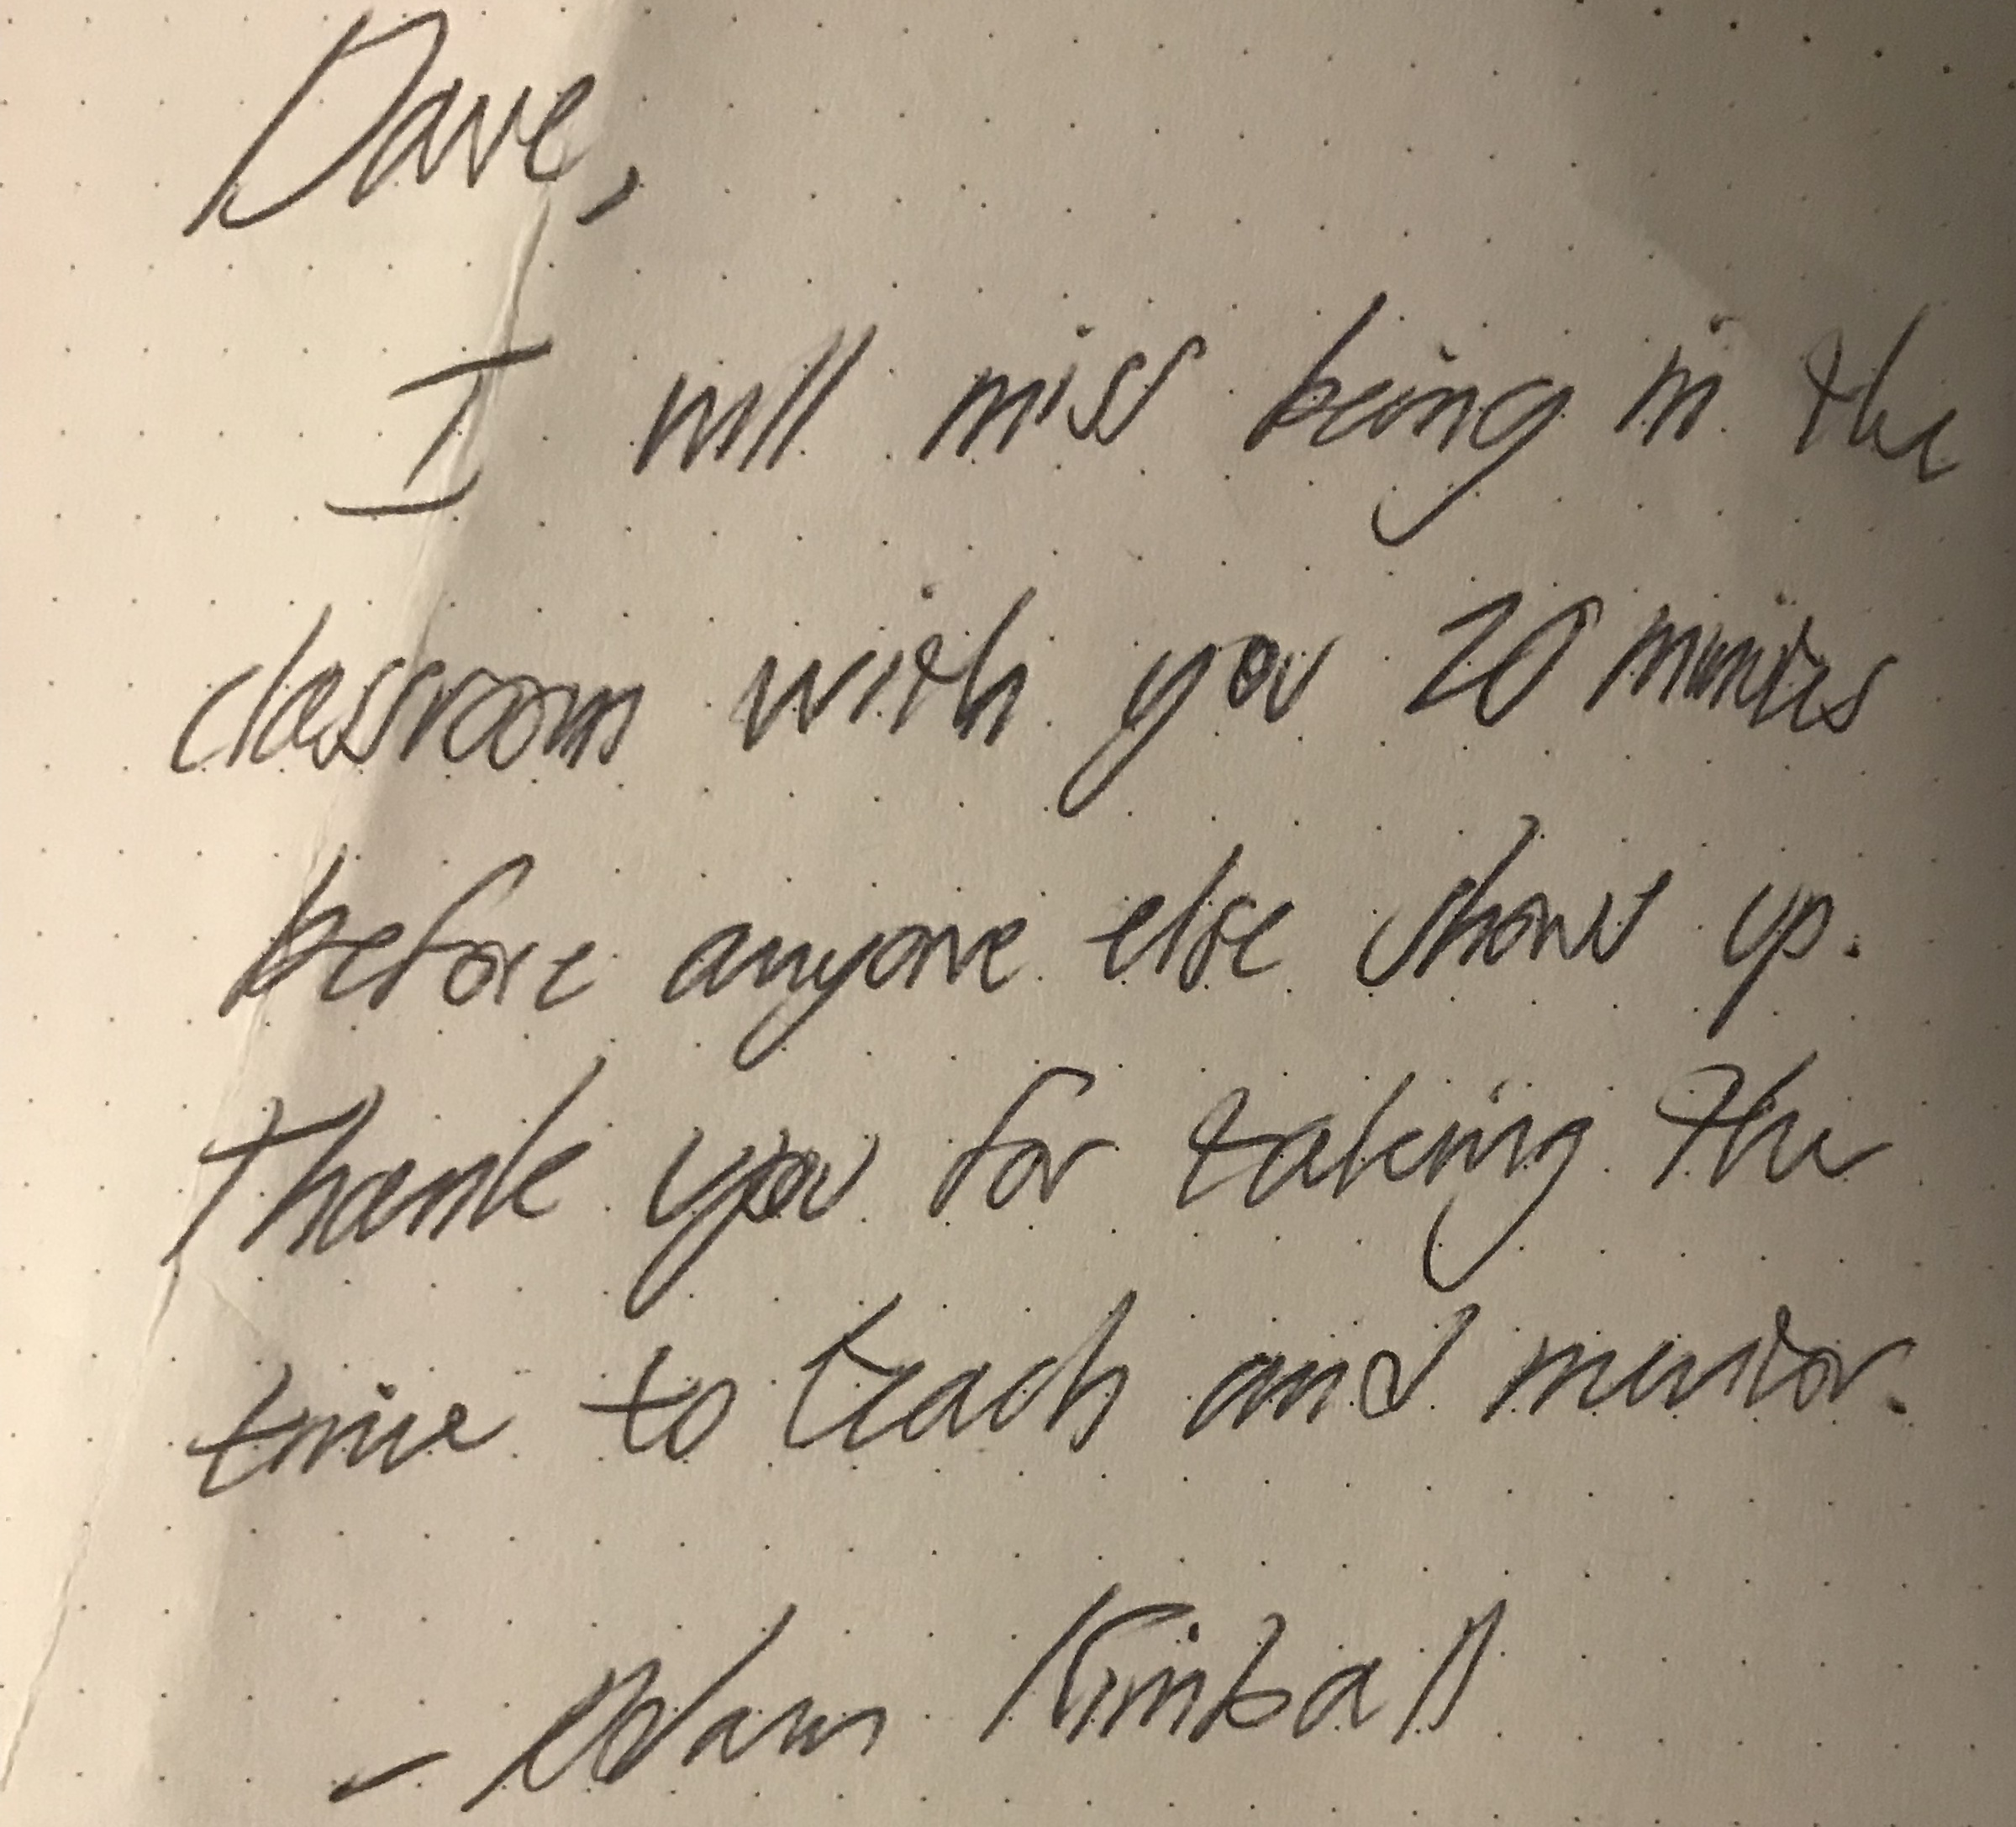 Dave,
I will miss being in the
classroom with you 20 minutes
before anyone else shows up.
Thank you for taking the
time to teach and mentor.
- Adam Kimball